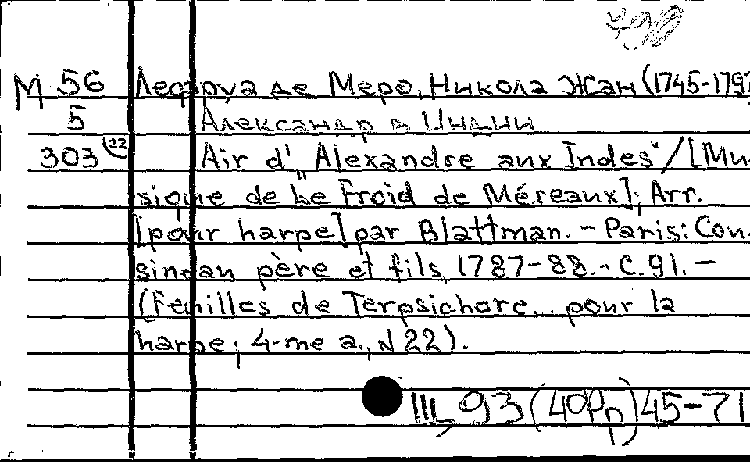 М 56 Лефруа де Меро, Никола Жан (1745-179
5 Александр в Индии
303 (22) Air d'"Alexandre aux Indes"/[Mu-
sique de Le Froid de Méreaux]; Arr.
[pour harpe] par Blattman. - Paris: Cou-
sineau père et fils, 1787-88. - C. 91. -
(Feuilles de Terpsichore... pour la
harpe; 4-me a., N 22).
III, 93 (40Рр) 45-71